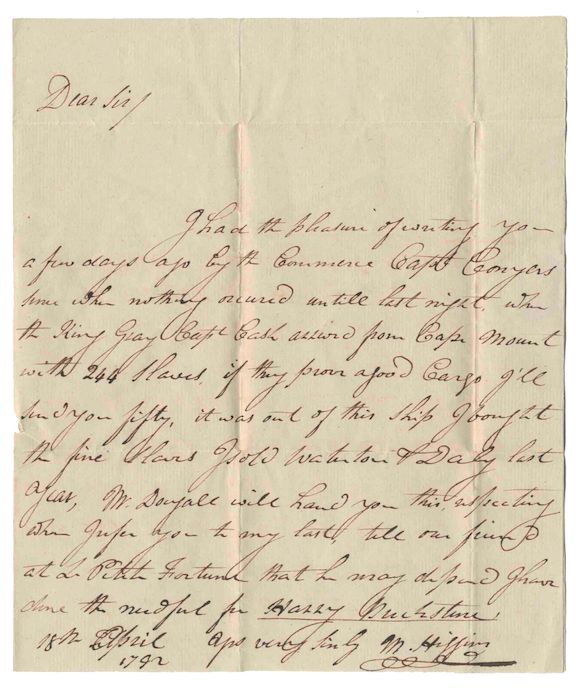 Dear Sir/
I had the pleasure of writing you
a few days ago by the Commerce Capt Conyers
since when nothing occured untill last night, when
the King Gray Capt Cash arrived from Cape Mount
with 244 Slaves, if they prove a good Cargo I'll
send you fifty, it was out of this Ship I bought
the five Slaves I sold Waterton & Daly last
Year, Mr. Dougall will hand you this, respecting
whom I refer you to my last, tell our friend
at La Petite Fortune that he may depend I have
done the needful for Harry Duckstine,
18th April yrs very truly M. Higgins
1792